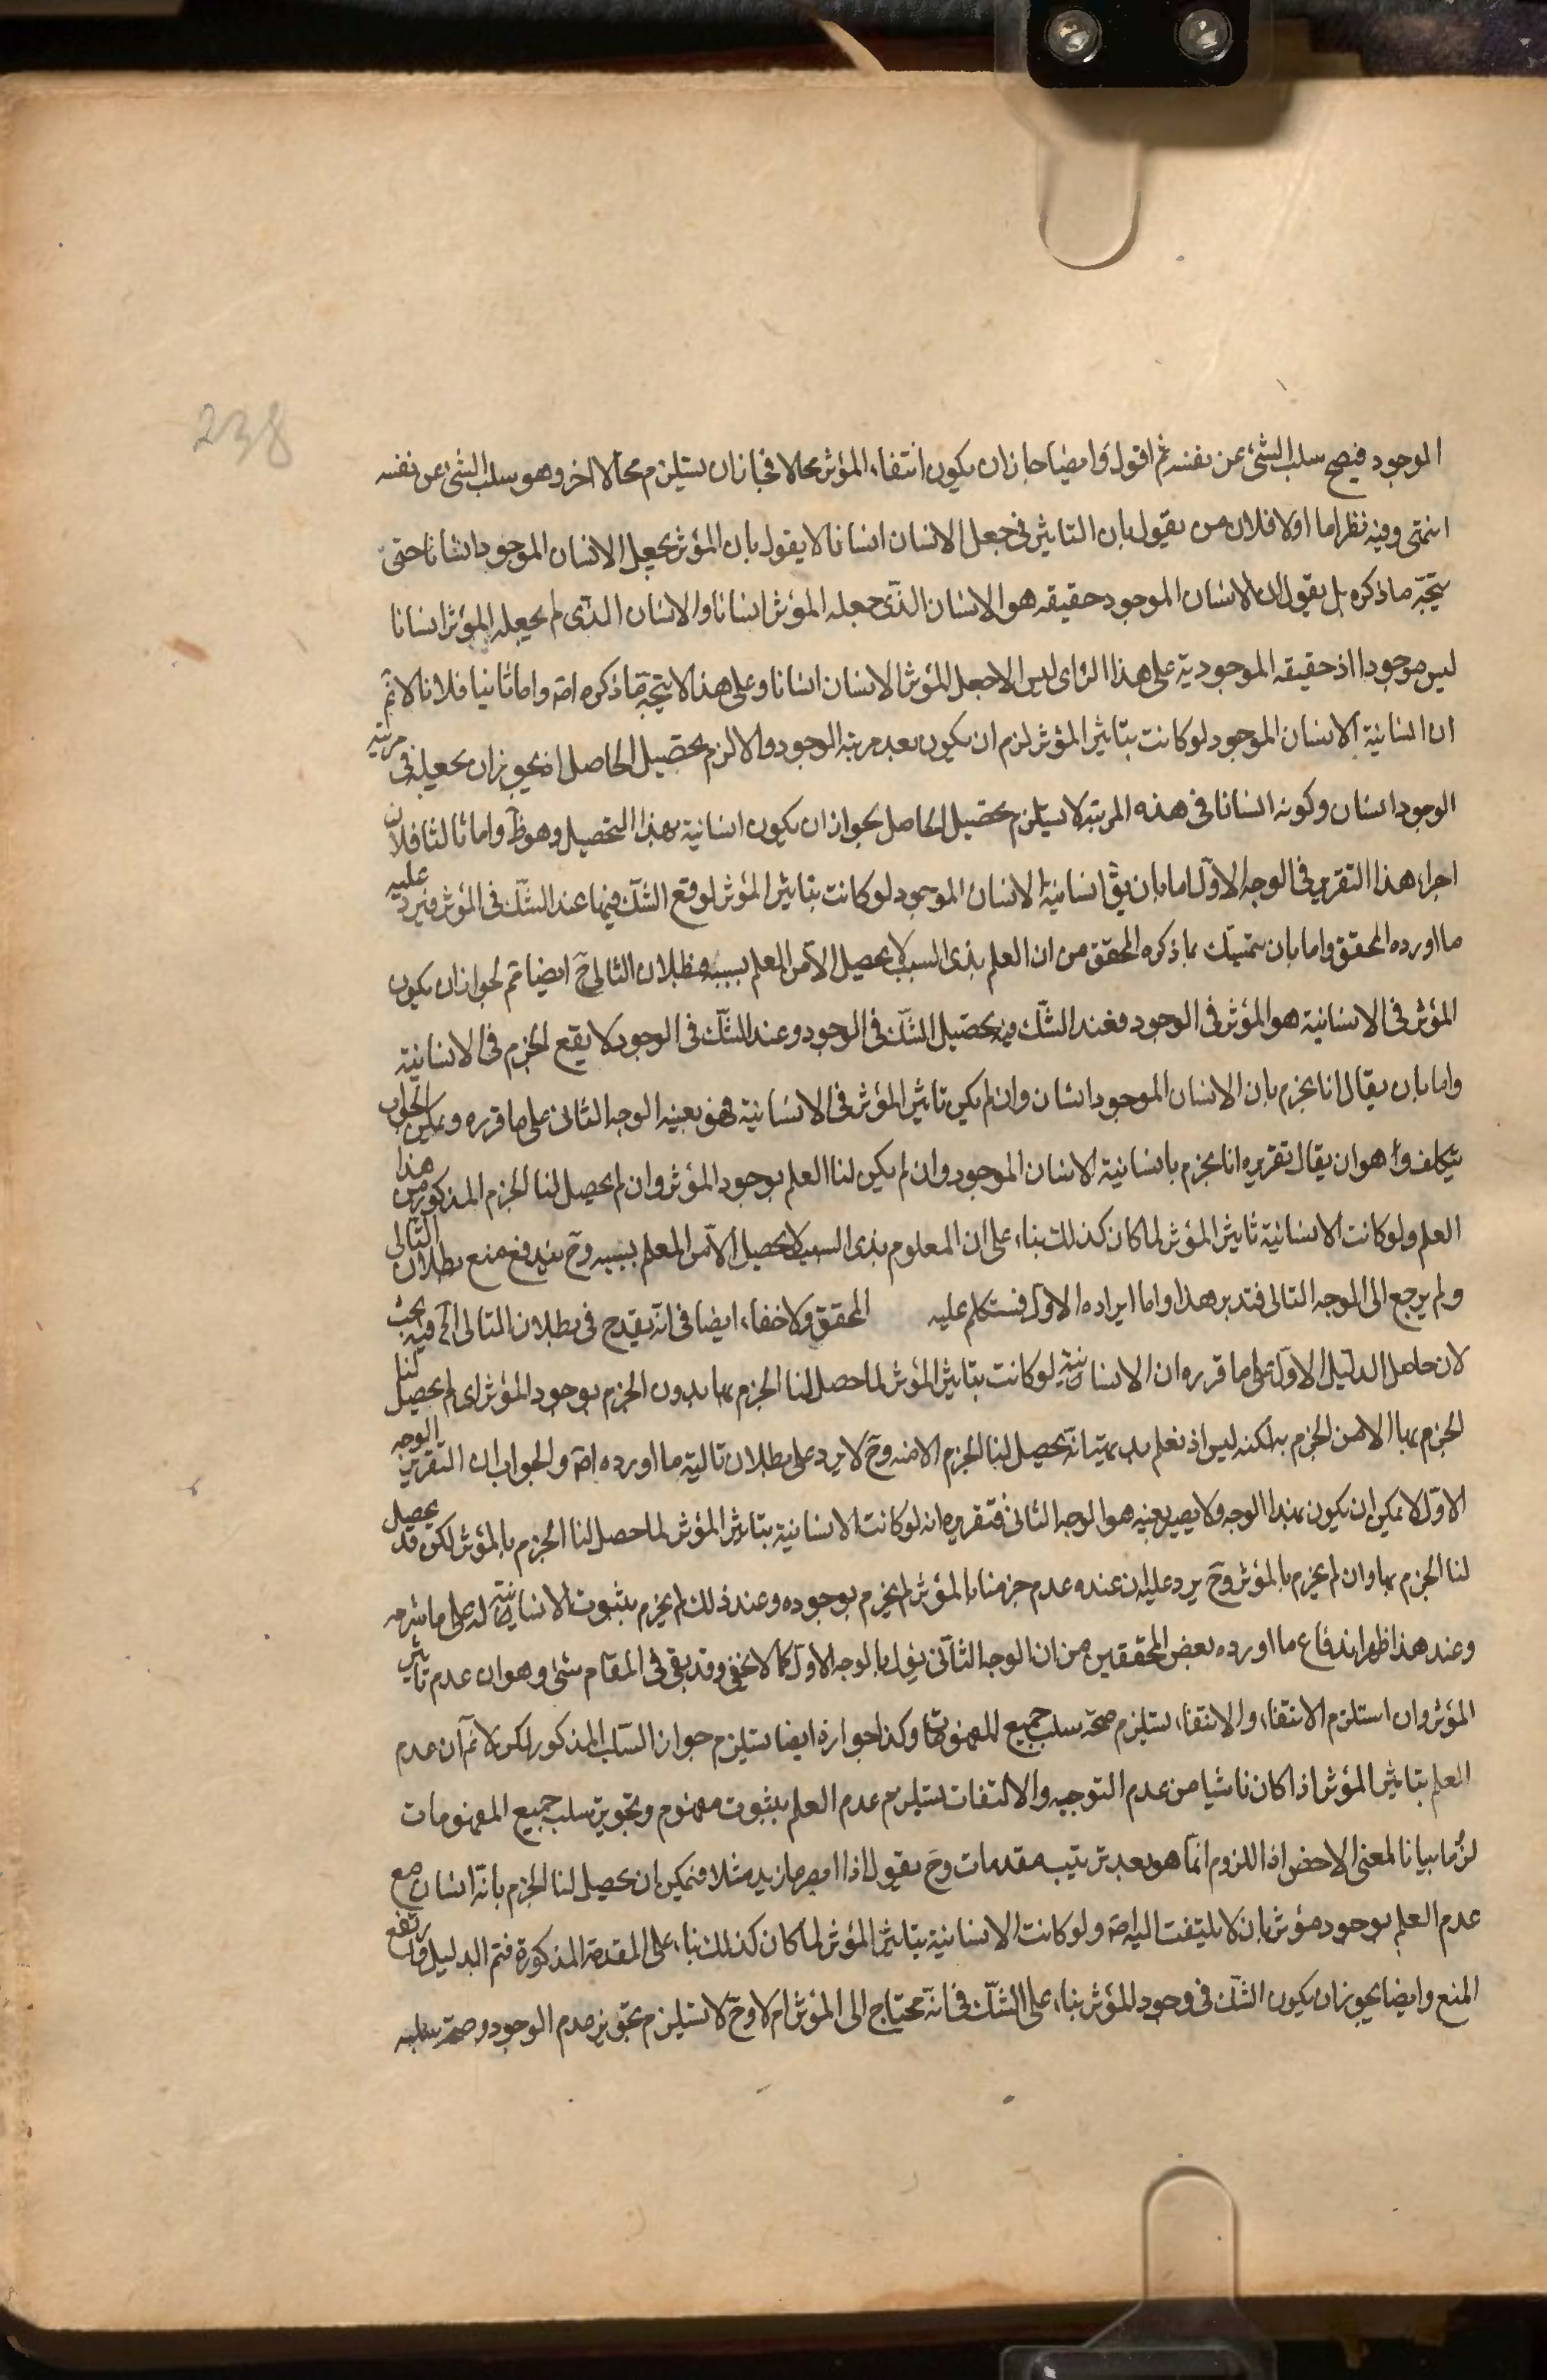 238
الموجود فيصح سلب الشئ عن نفسه ثم اقول وايضا جاز ان يكون انتفاء المؤثر محالا فجاز ان يستلزم محالا اخر وهو سلب الشئ عن نفسه
انتهى وفيه نظر اما اولا فلان من يقول بان التاثير في جعل الانسان انسانا لا يقول بان المؤثر يجعل الانسان الموجود انسانا حتى
يتجه ما ذكره بل يقول ان الانسان الموجود حقيقه هو الانسان الذى جعله المؤثر انسانا والانسان الذى لم يجعله المؤثر انسانا
ليس موجودا اذ حقيقه الموجودية على هذا الراى ليس الا جعل المؤثر الانسان انسانا وعلى هذا لا يتجه ما ذكره اصة واما ثانيا فلانا لا نم
ان انسانية الانسان الموجود لو كانت بتاثير المؤثر لزم ان يكون بعد مرتبة الوجود والا لزم تحصيل الحاصل اذ يجوز ان يجعله في مرتبه
الوجود انسان وكونه انسانا في هذه المرتبة لا يستلزم تحصيل الحاصل بجواز ان يكون انسانية بهذا التحصيل وهو ظ واما ثالثا فلان
اجراء هذا التقرير في الوجه الاول اما بان يق انسانية الانسان الموجود لو كانت بتاثير المؤثر لوقع الشك فيها عند الشك في المؤثر فيرد عليه
ما اورده المحقق واما بان يتمسك بما ذكره المحقق من ان العلم بذى السبب لا يحصل الا من العلم بسببه فبطلان التالى ح ايضا تم لجواز ان يكون
المؤثر في الانسانية هو المؤثر في الوجود فعند الشك فيه يحصل الشك في الوجود وعند الشك في الوجود لا يقع الجزم في الانسانية
واما بان يقال انا نجزم بان الانسان الموجود انسان وان لم يكن تاثير المؤثر في الانسانية فهو بعينه الوجه الثانى على ما قرره ويمكن الجواب
بتكلف وهو ان يقال تقريره انا نجزم بانسانية الانسان الموجود وان لم يكن لنا العلم بوجود المؤثر وان لم يحصل لنا الجزم المذكور من هذا
العلم ولو كانت الانسانية تاثير المؤثر لما كان كذلك بناء على ان المعلوم بذى السبب لا يحصل الا من العلم بسببه وح يندفع منع بطلان التالى
ولم يرجع الى الوجه الثانى فتدبر هذا واما ايراده الاول فسنتكلم عليه المحقق ولا خفاء ايضا في انه يقدح في بطلان التالى الخ فيه بحث
لان حاصل الدليل الاول على ما قرره ان الانسانية لو كانت بتاثير المؤثر لما حصل لنا الجزم بها بدون الجزم بوجود المؤثر اى لم يحصل لنا
الجزم بها الا من الجزم به لكنه ليس اذ نعلم بديهتا انه يحصل لنا الجزم الا منه وح لا يرد على بطلان تاليه ما اورده اصة والجواب ان التقرير الوجه
الاول لا يمكن ان يكون بهذا الوجه ولا يصير بعينه هو الوجه الثانى فتقريره انه لو كانت الانسانية بتاثير المؤثر لما حصل لنا الجزم بالمؤثر لكن قد يحصل
لنا الجزم بها وان لم نجزم بالمؤثر وح يرد عليه ان عنده عدم جزمنا بالمؤثر لم نجزم بوجوده وعند ذلك لم نجزم بثبوت الانسانية له على ما شرحه
وعند هذا ظهر اندفاع ما اورده بعض المحققين من ان الوجه الثانى يؤل بالوجه الاول كما لا يخفى وقد بقى في المقام شئ وهو ان عدم تاثير
المؤثر وان استلزم الانتفاء والانتفاء يستلزم صحة سلب جميع المفهومات وكذا جوازه ايضا يستلزم جواز السلب المذكور لكن لا نم ان عدم
العلم بتاثير المؤثر اذا كان ناشيا من عدم التوجيه والالتفات يستلزم عدم العلم بثبوت مفهوم وتجويز سلب جميع المفهومات
لزوما بيانا لمعنى الاخص اذ اللزوم انما هو بعد ترتيب مقدمات وح يقول اذا ابصرنا زيد مثلا فيمكن ان يحصل لنا الجزم بانه انسان مع
عدم العلم بوجود مؤثر بان لا يلتفت اليه اصة ولو كانت الانسانية بتاثير المؤثر لما كان كذلك بناء على المقدمة المذكورة فتم الدليل وارتفع
المنع وايضا يجوز ان يكون الشك في وجود المؤثر بناء على الشك في انه محتاج الى المؤثر ام لا وح لا يستلزم تجويز عدم الوجود وصحة سلبه